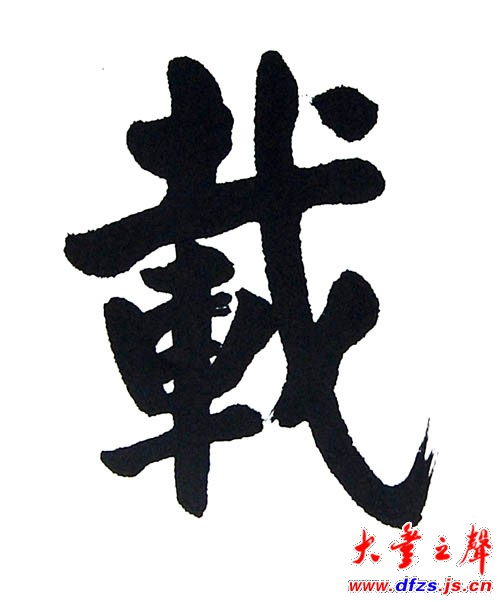 載
大豐之聲
www.dfzs.js.cn